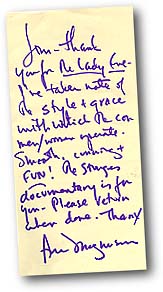 Jon - Thank
you for The Lady Eve -
I've taken note of
The style + grace
with which The con
men/women operate.
Smooth, cunning +
FUN! The Sturges
documentary is for
you. Please return
when done. Thanx
Ann Magnuson